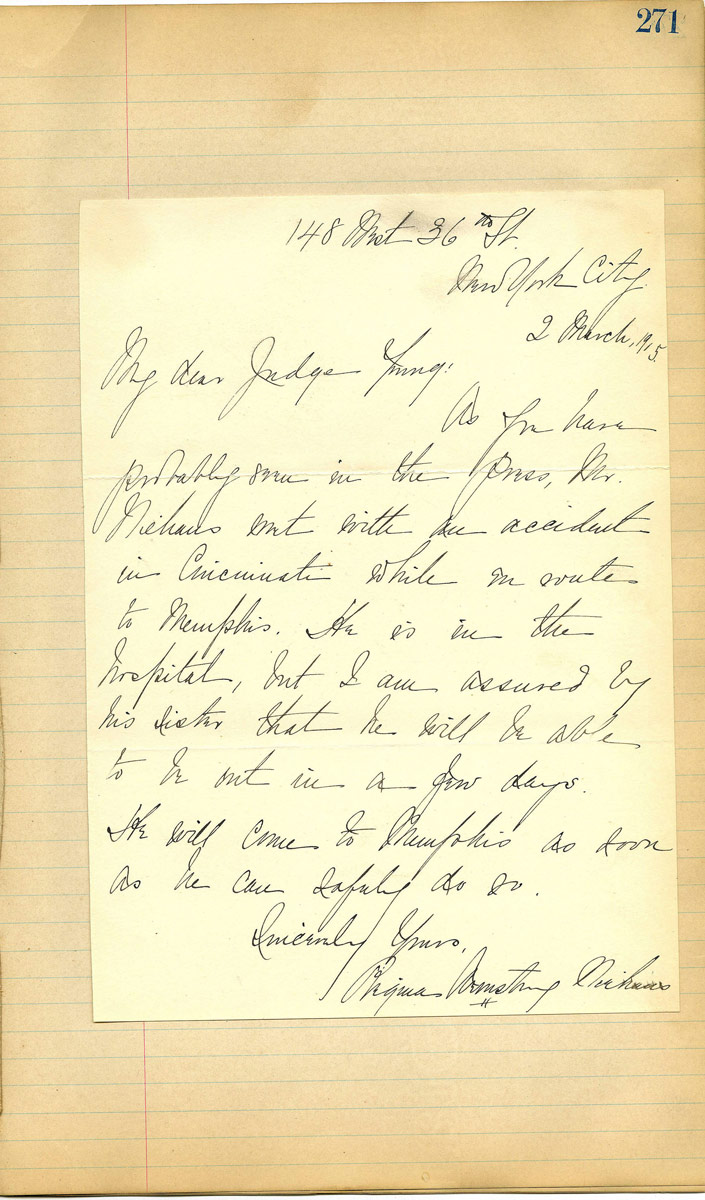 271
148 West 36th St.
New York City.
2 March, 1915.
My dear Judge Young:
As you have
probably seen in the press, Mr.
Niehaus met with an accident
in Cincinnati while en route
to Memphis. He is in the
hospital, but I am assured by
his sister that he will be able
to be out in a few days.
He will come to Memphis as soon
as he can safely do so.
Sincerely Yours,
Regina Armstrong Niehaus